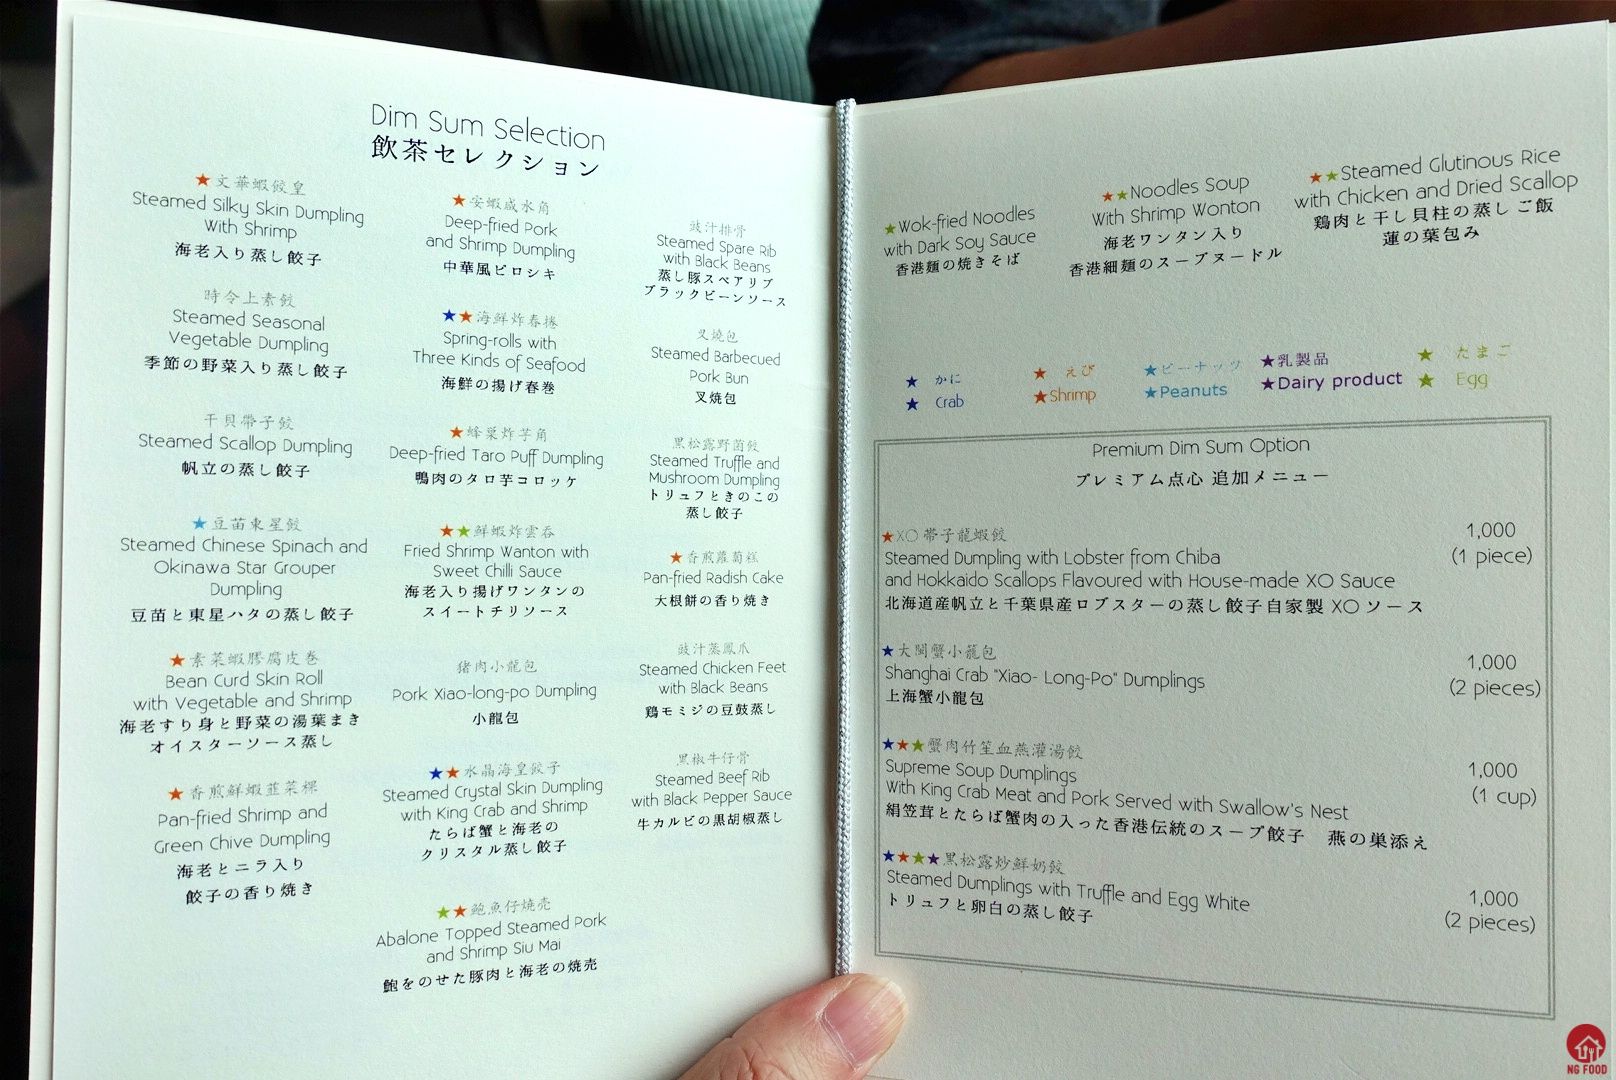 Dim Sum Selection
飲茶セレクション
★文華蝦餃皇
Steamed Silky Skin Dumpling
With Shrimp
海老入り蒸し餃子
時令上素餃
Steamed Seasonal
Vegetable Dumpling
季節の野菜入り蒸し餃子
干貝帶子餃
Steamed Scallop Dumpling
帆立の蒸し餃子
★豆苗東星餃
Steamed Chinese Spinach and
Okinawa Star Grouper
Dumpling
豆苗と東星ハタの蒸し餃子
★素菜蝦膠腐皮卷
Bean Curd Skin Roll
with Vegetable and Shrimp
海老すり身と野菜の湯葉まき
オイスターソース蒸し
★香煎鮮蝦韮菜粿
Pan-fried Shrimp and
Green Chive Dumpling
海老とニラ入り
餃子の香り焼き
★安蝦咸水角
Deep-fried Pork
and Shrimp Dumpling
中華風ピロシキ
★★海鮮炸春捲
Spring-rolls with
Three Kinds of Seafood
海鮮の揚げ春巻
★蜂巣炸芋角
Deep-fried Taro Puff Dumpling
鴨肉のタロ芋コロッケ
★★鮮蝦炸雲呑
Fried Shrimp Wanton with
Sweet Chilli Sauce
海老入り揚げワンタンの
スイートチリソース
猪肉小龍包
Pork Xiao-long-po Dumpling
小龍包
★★水晶海皇餃子
Steamed Crystal Skin Dumpling
with King Crab and Shrimp
たらば蟹と海老の
クリスタル蒸し餃子
★★鮑魚仔焼売
Abalone Topped Steamed Pork
and Shrimp Siu Mai
鮑をのせた豚肉と海老の焼売
豉汁排骨
Steamed Spare Rib
with Black Beans
蒸し豚スペアリブ
ブラックビーンソース
叉燒包
Steamed Barbecued
Pork Bun
叉焼包
黒松露野菌餃
Steamed Truffle and
Mushroom Dumpling
トリュフときのこの
蒸し餃子
★香煎蘿蔔糕
Pan-fried Radish Cake
大根餅の香り焼き
豉汁蒸鳳爪
Steamed Chicken Feet
with Black Beans
鶏モミジの豆鼓蒸し
黒椒牛仔骨
Steamed Beef Rib
with Black Pepper Sauce
牛カルビの黒胡椒蒸し
★Wok-fried Noodles
with Dark Soy Sauce
香港麺の焼きそば
★★Noodles Soup
With Shrimp Wonton
海老ワンタン入り
香港細麺のスープヌードル
★★Steamed Glutinous Rice
with Chicken and Dried Scallop
鶏肉と干し貝柱の蒸しご飯
蓮の葉包み
★ かに ★ えび ★ピーナッツ ★乳製品 ★ たまご
★ Crab ★Shrimp ★Peanuts ★Dairy product ★ Egg
Premium Dim Sum Option
プレミアム点心 追加メニュー
★XO 帶子龍蝦餃 1,000
Steamed Dumpling with Lobster from Chiba (1 piece)
and Hokkaido Scallops Flavoured with House-made XO Sauce
北海道産帆立と千葉県産ロブスターの蒸し餃子自家製 XO ソース
★大閘蟹小籠包 1,000
Shanghai Crab "Xiao- Long-Po" Dumplings (2 pieces)
上海蟹小龍包
★★★蟹肉竹笙血燕灌湯餃
Supreme Soup Dumplings 1,000
With King Crab Meat and Pork Served with Swallow's Nest (1 cup)
絹笠茸とたらば蟹肉の入った香港伝統のスープ餃子　燕の巣添え
★★★★黒松露炒鮮奶餃
Steamed Dumplings with Truffle and Egg White 1,000
トリュフと卵白の蒸し餃子 (2 pieces)
NG FOOD